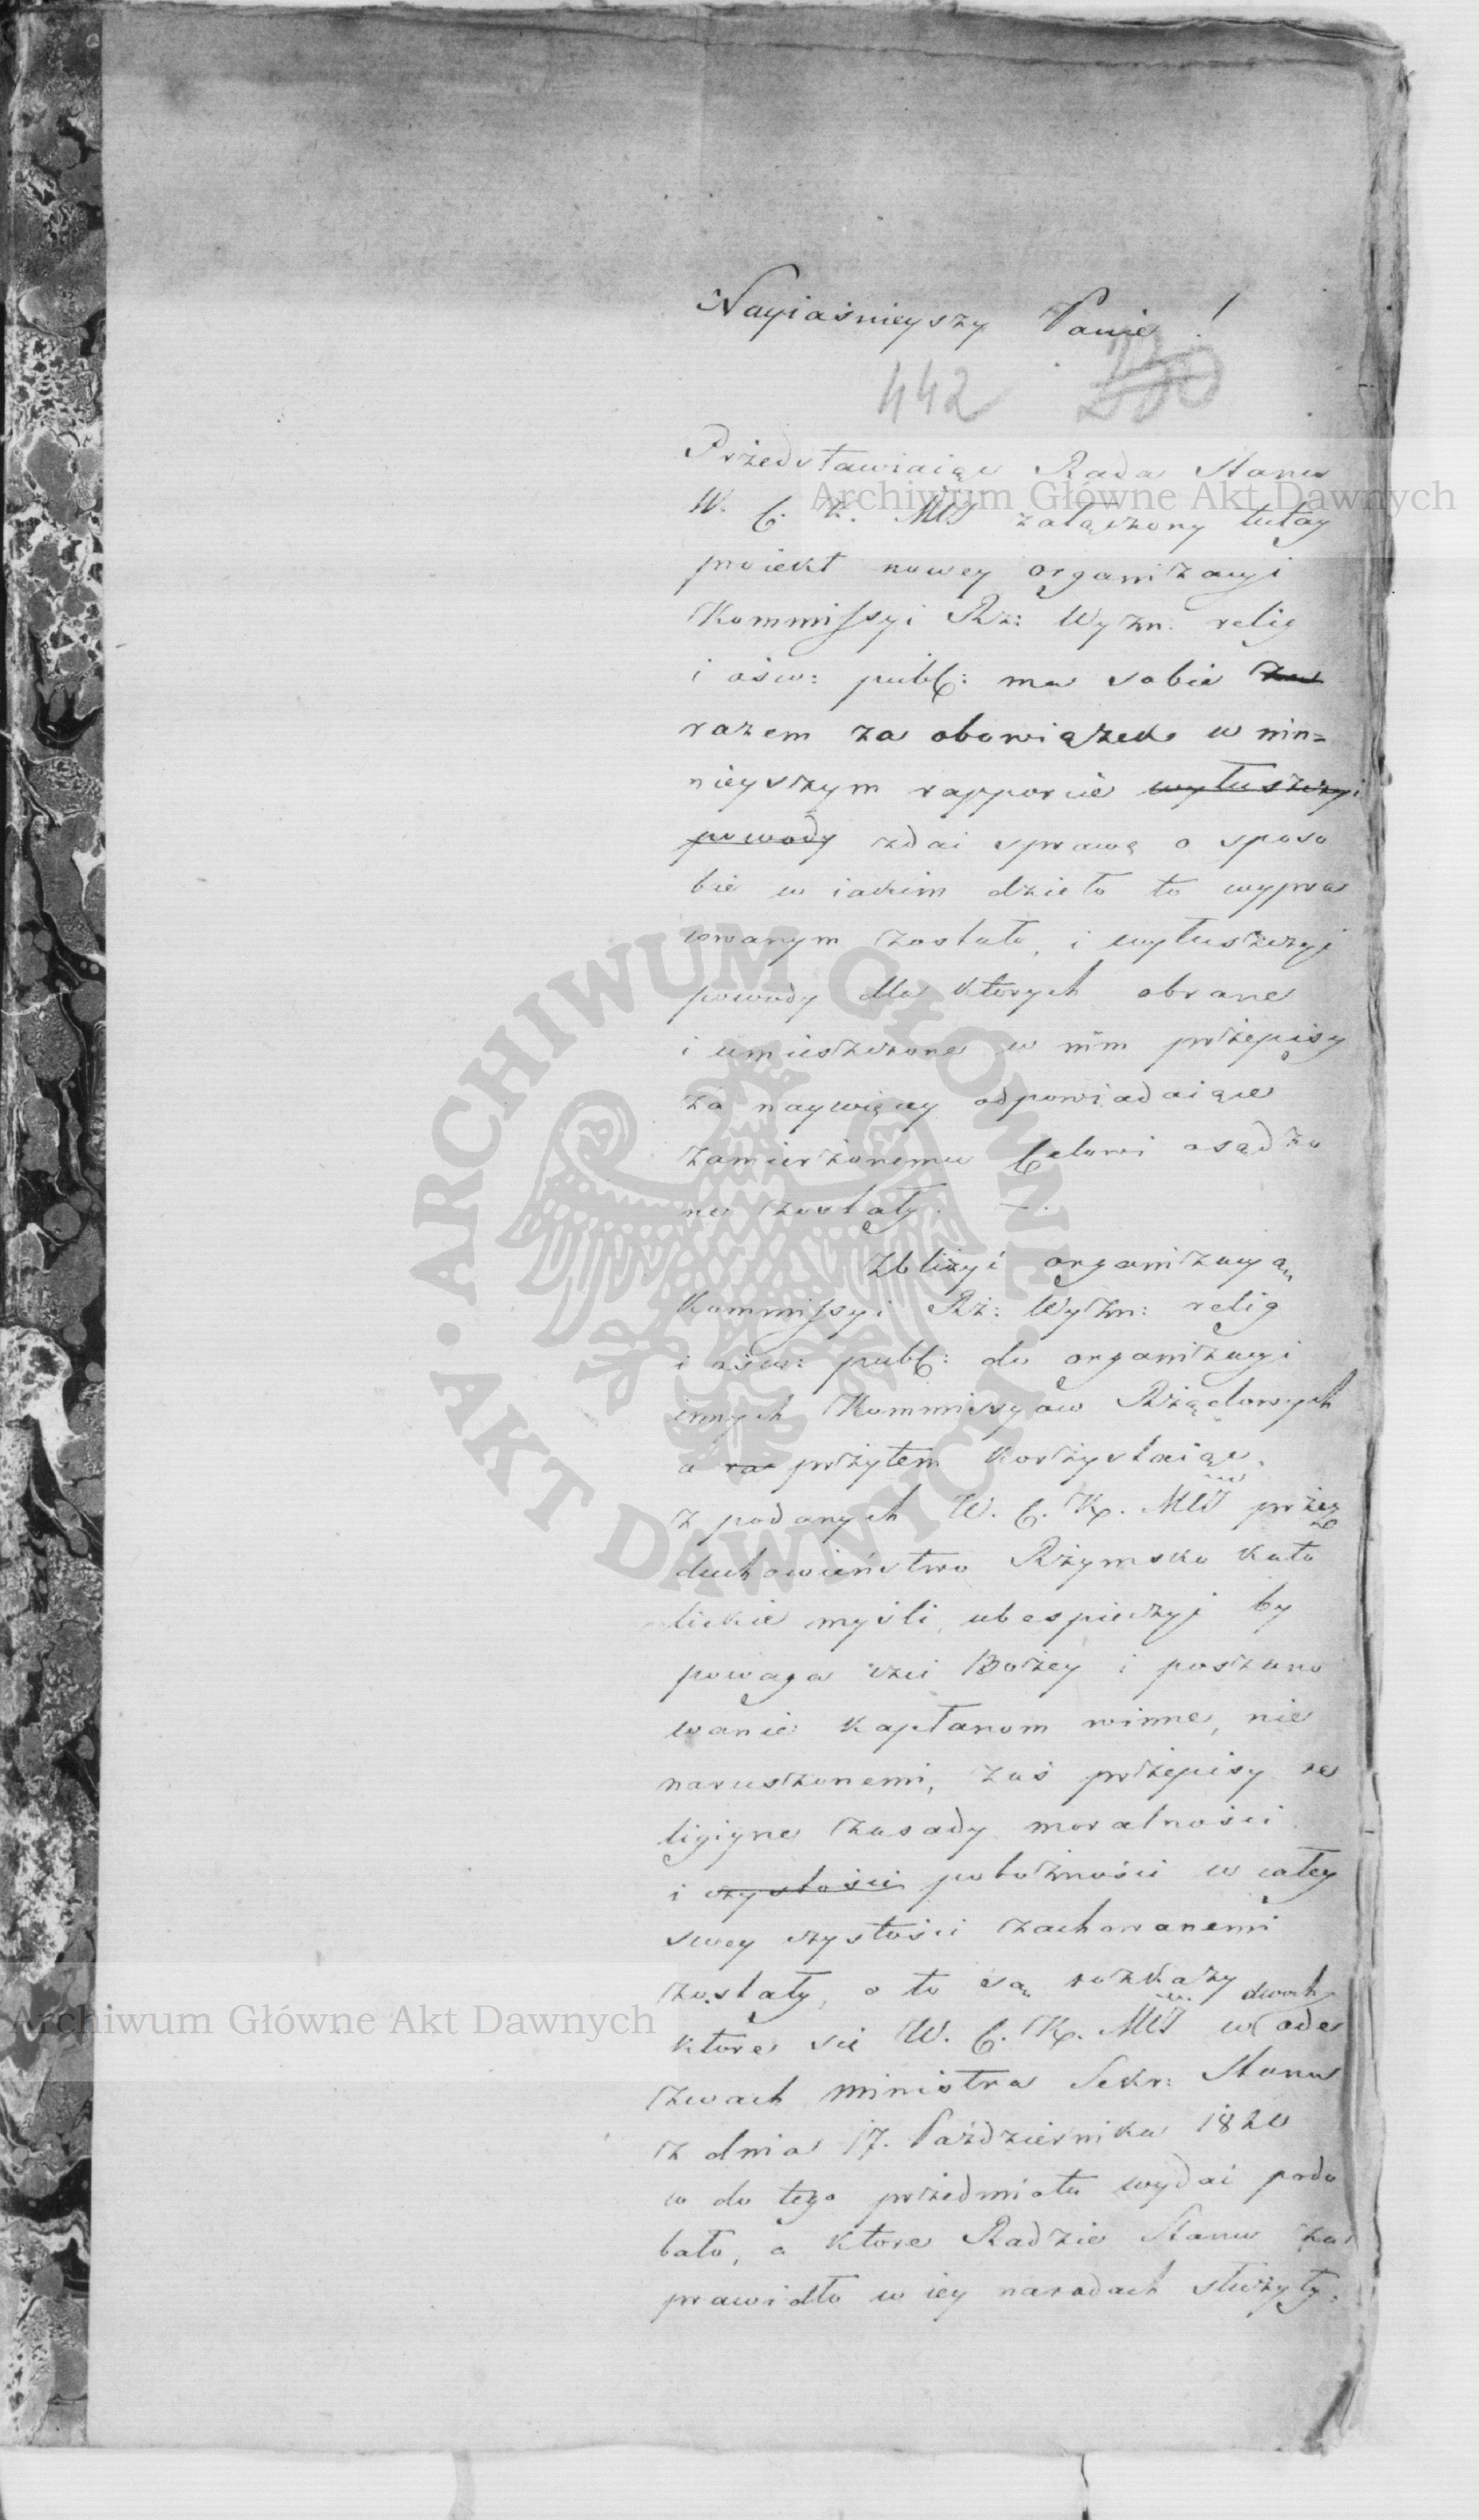 Nayiaśnieyszy Panie!
442
Przedstawiaiąc Rada Stanu
W. C. K. Mci załączony tutay
proiekt nowey organizacyi
Kommissyi Rz: Wyzn: relig
i ośw: publ: ma sobie za
razem za obowiązek w nin=
nieyszym rapporcie wyłuszczyc
powody zdai sprawę o sposo
bie w iakim dzieło to wypra
cowanym zostało, i wyłuszczyc
powody dla ktorych obrane
i umieszczone w nim przepisy
za naywięcey odpowiadaiące
zamierzonemu Celowi osądzo
ne zostały. —.
Zbliżyć organizacyą
Kommissyi Rz: Wyzn: relig
i ośw: publ: do organizacyi
innych Kommissyow Rządowych
a przytem korzystaiąc
z podanych W. C. K. Mci przez
duchowieństwo Rzymsko kato
lickie myśli, ubespieczyc by
powaga czci Bożey i poszano
wanie kapłanom winne, nie
naruszonemi, zaś przepisy re
ligiyne zasady moralności
i czystości pobożności w całey
swey czystości zachowanemi
zostały, o to są rozkazy
ktore się W. C. K. Mci w dwoch ode
zwach Ministra Sekr: Stanu
z dnia 17. Października 1820
w do tego przedmiotu wydai podo
bało, a ktore Radzie Stanu za
prawidło w iey naradach służyły.
Archiwum Główne Akt Dawnych
Archiwum Główne Akt Dawnych
ARCHIWUM GŁÓWNE AKT DAWNYCH